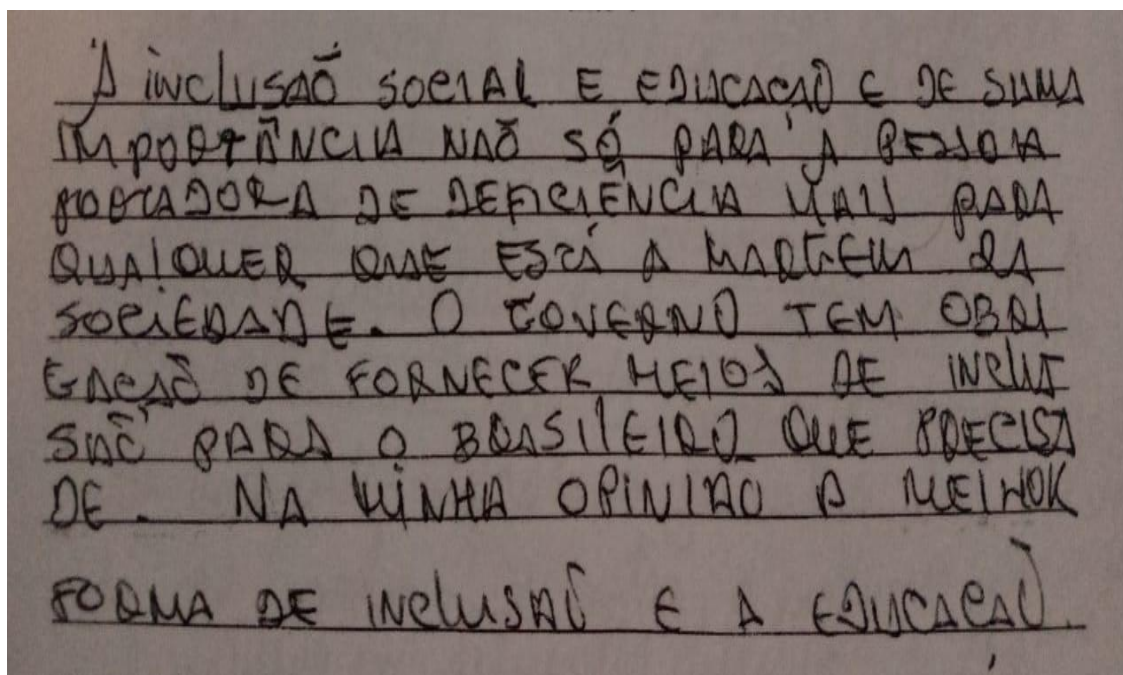 A INCLUSAÕ SOCIAL E EDUCACAÕ E DE SUMA
IMPORTÂNCIA NAÕ SÓ PARA A PESSOA
PORTADORA DE DEFICIÊNCIA MAIS PARA
QUALQUER QUE ESTÁ A MARGEM DA
SOCIEDADE. O GOVERNO TEM OBRI
GACAÕ DE FORNECER MEIOS DE INCLU
SAÕ PARA O BRASILEIRO QUE PRECISA
DE. NA MINHA OPINIAO A MELHOR
FORMA DE INCLUSAÕ E A EDUCACAÕ.